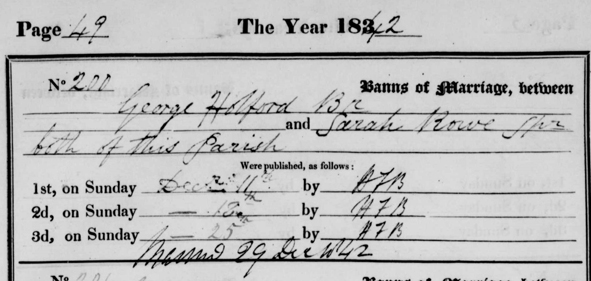 Page 49 The Year 1842
No 200 Banns of Marriage, between
George Holford Br
and Sarah Rowe Spr
both of this Parish
Were published, as follows :
1st, on Sunday Decr 11th by HFB
2d, on Sunday — 18th by HFB
3d, on Sunday — 25th by HFB
Married 29 Dec 1842
No Banns of Marriage between